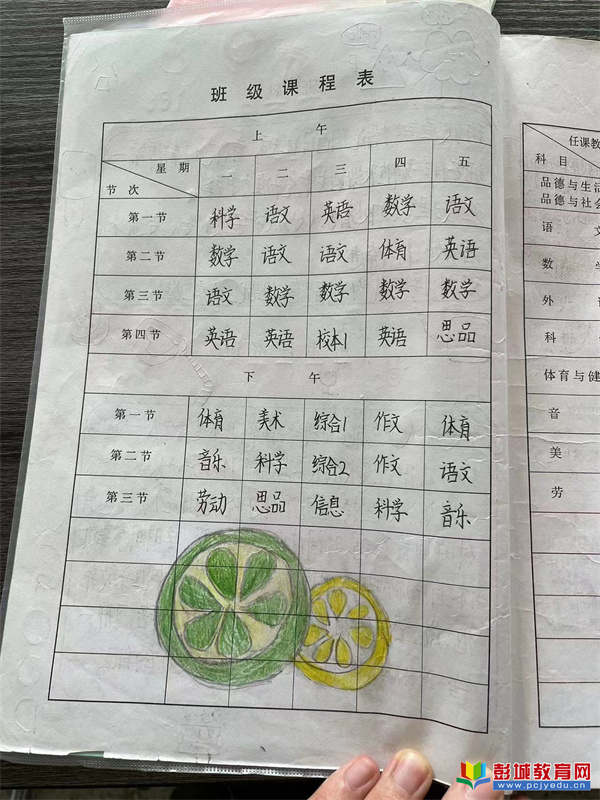 班级课程表
上午
星期 一 二 三 四 五
节次
第一节 科学 语文 英语 数学 语文
第二节 数学 语文 语文 体育 英语
第三节 语文 数学 数学 数学 数学
第四节 英语 英语 校本1 英语 思品
下午
第一节 体育 美术 综合1 作文 体育
第二节 音乐 科学 综合2 作文 语文
第三节 劳动 思品 信息 科学 音乐
任课教
科目
品德与生活
品德与社会
语文
数学
外
科
体育与健
音
美
劳
彭城教育网
www.pcjyedu.cn